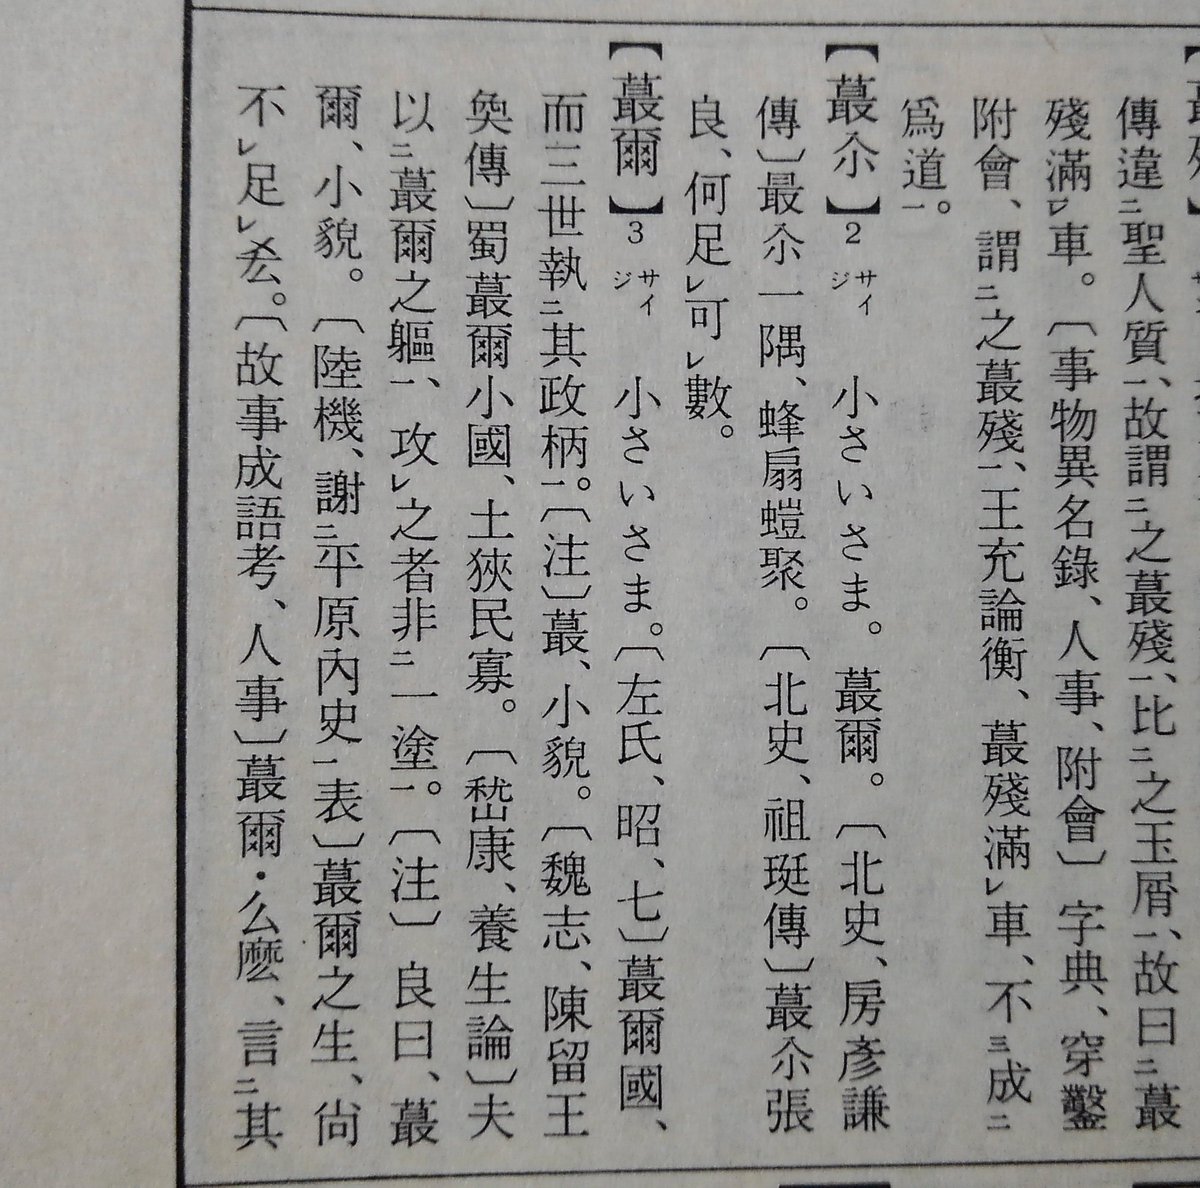 傳違㆓聖人質㆒、故謂㆓之蕞殘㆒、比㆓之玉屑㆒、故曰㆓蕞
殘滿㆑車。〔事物異名錄、人事、附會〕字典、穿鑿
附會、謂㆓之蕞殘㆒、王充論衡、蕞殘滿㆑車、不㆔成㆓
爲道㆒。
【蕞尒】2 サイジ 小さいさま。蕞爾。〔北史、房彥謙
傳〕最尒一隅、蜂扇螘聚。〔北史、祖珽傳〕蕞尒張
良、何足㆑可㆑數。
【蕞爾】3 サイジ 小さいさま。〔左氏、昭、七〕蕞爾國、
而三世執㆓其政柄㆒。〔注〕蕞、小貌。〔魏志、陳留王
奐傳〕蜀蕞爾小國、土狹民寡。〔嵆康、養生論〕夫
以㆓蕞爾之軀㆒、攻㆑之者非㆓一塗㆒。〔注〕良曰、蕞
爾、小貌。〔陸機、謝㆓平原內史㆒表〕蕞爾之生、尙
不㆑足㆑㕕。〔故事成語考、人事〕蕞爾・么麼、言㆓其